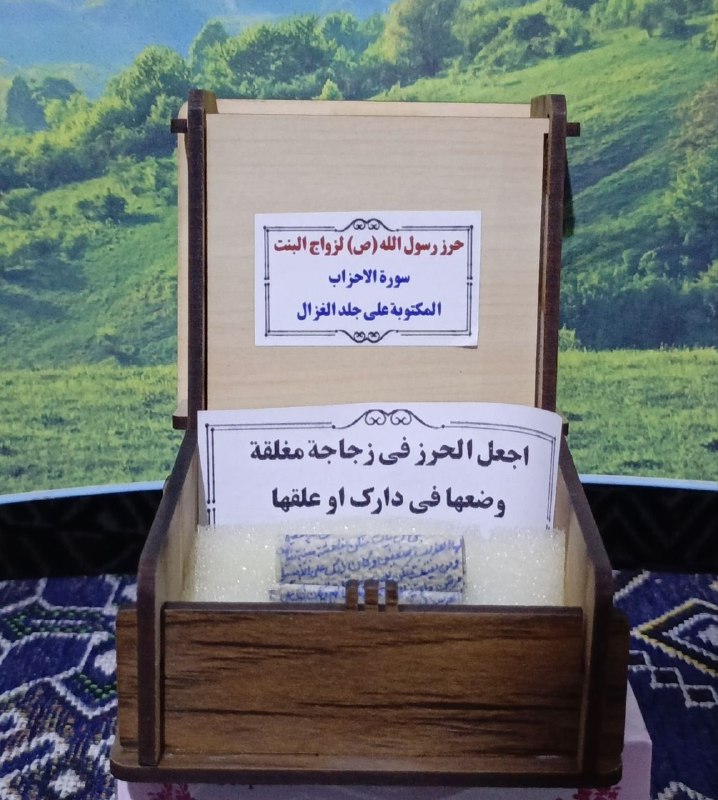 حرز رسول الله (ص) لزواج البنت
سورة الاحزاب
المكتوبة على جلد الغزال
اجعل الحرز فى زجاجة مغلقة
وضعها فى دارك او علقها